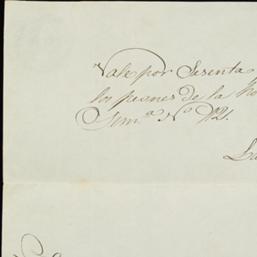 Vale por Sesenta
los peones de la
Sem.ª N.º 121.